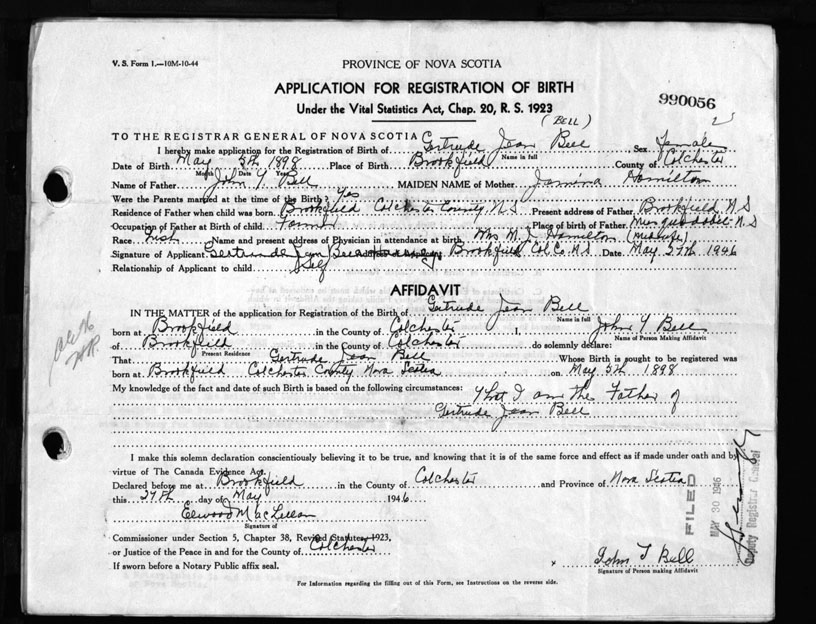 V. S. Form 1.—10M-10-44
PROVINCE OF NOVA SCOTIA
APPLICATION FOR REGISTRATION OF BIRTH
990056
Under the Vital Statistics Act, Chap. 20, R. S. 1923
(BELL)
TO THE REGISTRAR GENERAL OF NOVA SCOTIA
I hereby make application for the Registration of Birth of Gertrude Jean Bell Sex Female
Name in full
Date of Birth May 5th 1898 Place of Birth Brookfield County of Colchester
Month Date Year
Name of Father John Y Bell MAIDEN NAME of Mother Hamilton
Were the Parents married at the time of the Birth? Yes
Residence of Father when child was born Brookfield Colchester County N.S Present address of Father Brookfield N S
Occupation of Father at Birth of child Farmer Place of birth of Father Musquodoboit N S
Race Irish Name and present address of Physician in attendance at birth Mrs M. J. Hamilton (Midwife)
Signature of Applicant Gertrude Jean Bell Brookfield Col Co. N S Date May 27th 1946
Relationship of Applicant to child Self
AFFIDAVIT
IN THE MATTER of the application for Registration of the Birth of Gertrude Jean Bell
Name in full
born at Brookfield in the County of Colchester I, John Y Bell
Name of Person Making Affidavit
of Brookfield in the County of Colchester do solemnly declare:
Present Residence
That Gertrude Jean Bell Whose Birth is sought to be registered was
born at Brookfield Colchester County Nova Scotia on May 5th 1898
My knowledge of the fact and date of such Birth is based on the following circumstances: That I am the Father of
Gertrude Jean Bell
I make this solemn declaration conscientiously believing it to be true, and knowing that it is of the same force and effect as if made under oath and by
virtue of The Canada Evidence Act.
Declared before me at Brookfield in the County of Colchester and Province of Nova Scotia
this 27th day of May 1946
Elwood MacLellan
Signature of
Commissioner under Section 5, Chapter 38, Revised Statutes, 1923,
or Justice of the Peace in and for the County of Colchester
If sworn before a Notary Public affix seal.
x John Y Bell
Signature of Person making Affidavit
FILED
MAY 30 1946
Deputy Registrar General
For Information regarding the filling out of this Form, see Instructions on the reverse side.